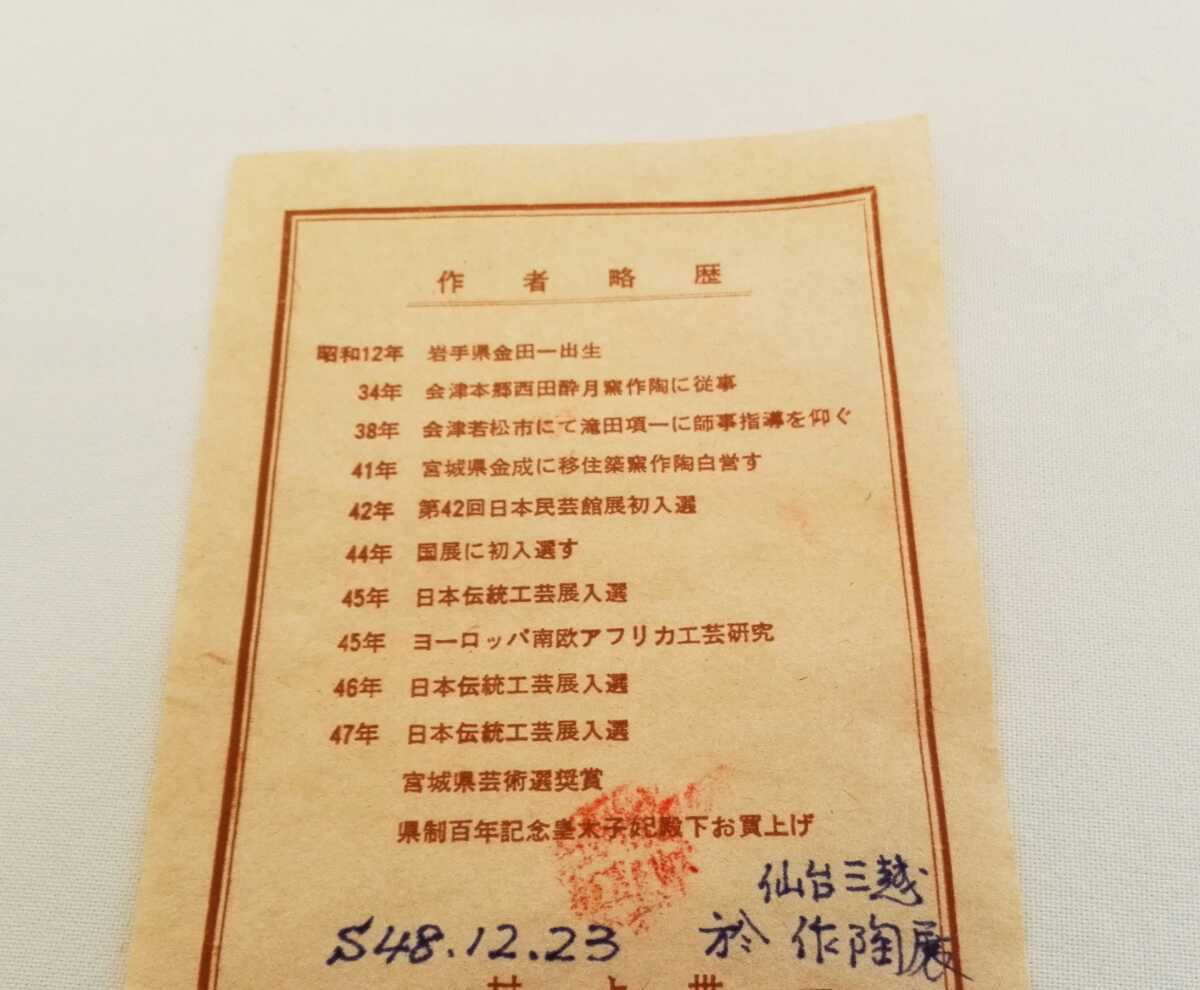 作者略歴
昭和12年 岩手県金田一出生
34年 会津本郷西田酔月窯作陶に従事
38年 会津若松市にて滝田項一に師事指導を仰ぐ
41年 宮城県金成に移住築窯作陶自営す
42年 第42回日本民芸館展初入選
44年 国展に初入選す
45年 日本伝統工芸展入選
45年 ヨーロッパ南欧アフリカ工芸研究
46年 日本伝統工芸展入選
47年 日本伝統工芸展入選
宮城県芸術選奨賞
県制百年記念皇太子妃殿下お買上げ
仙台三越
S48.12.23 於 作陶展
村上世一